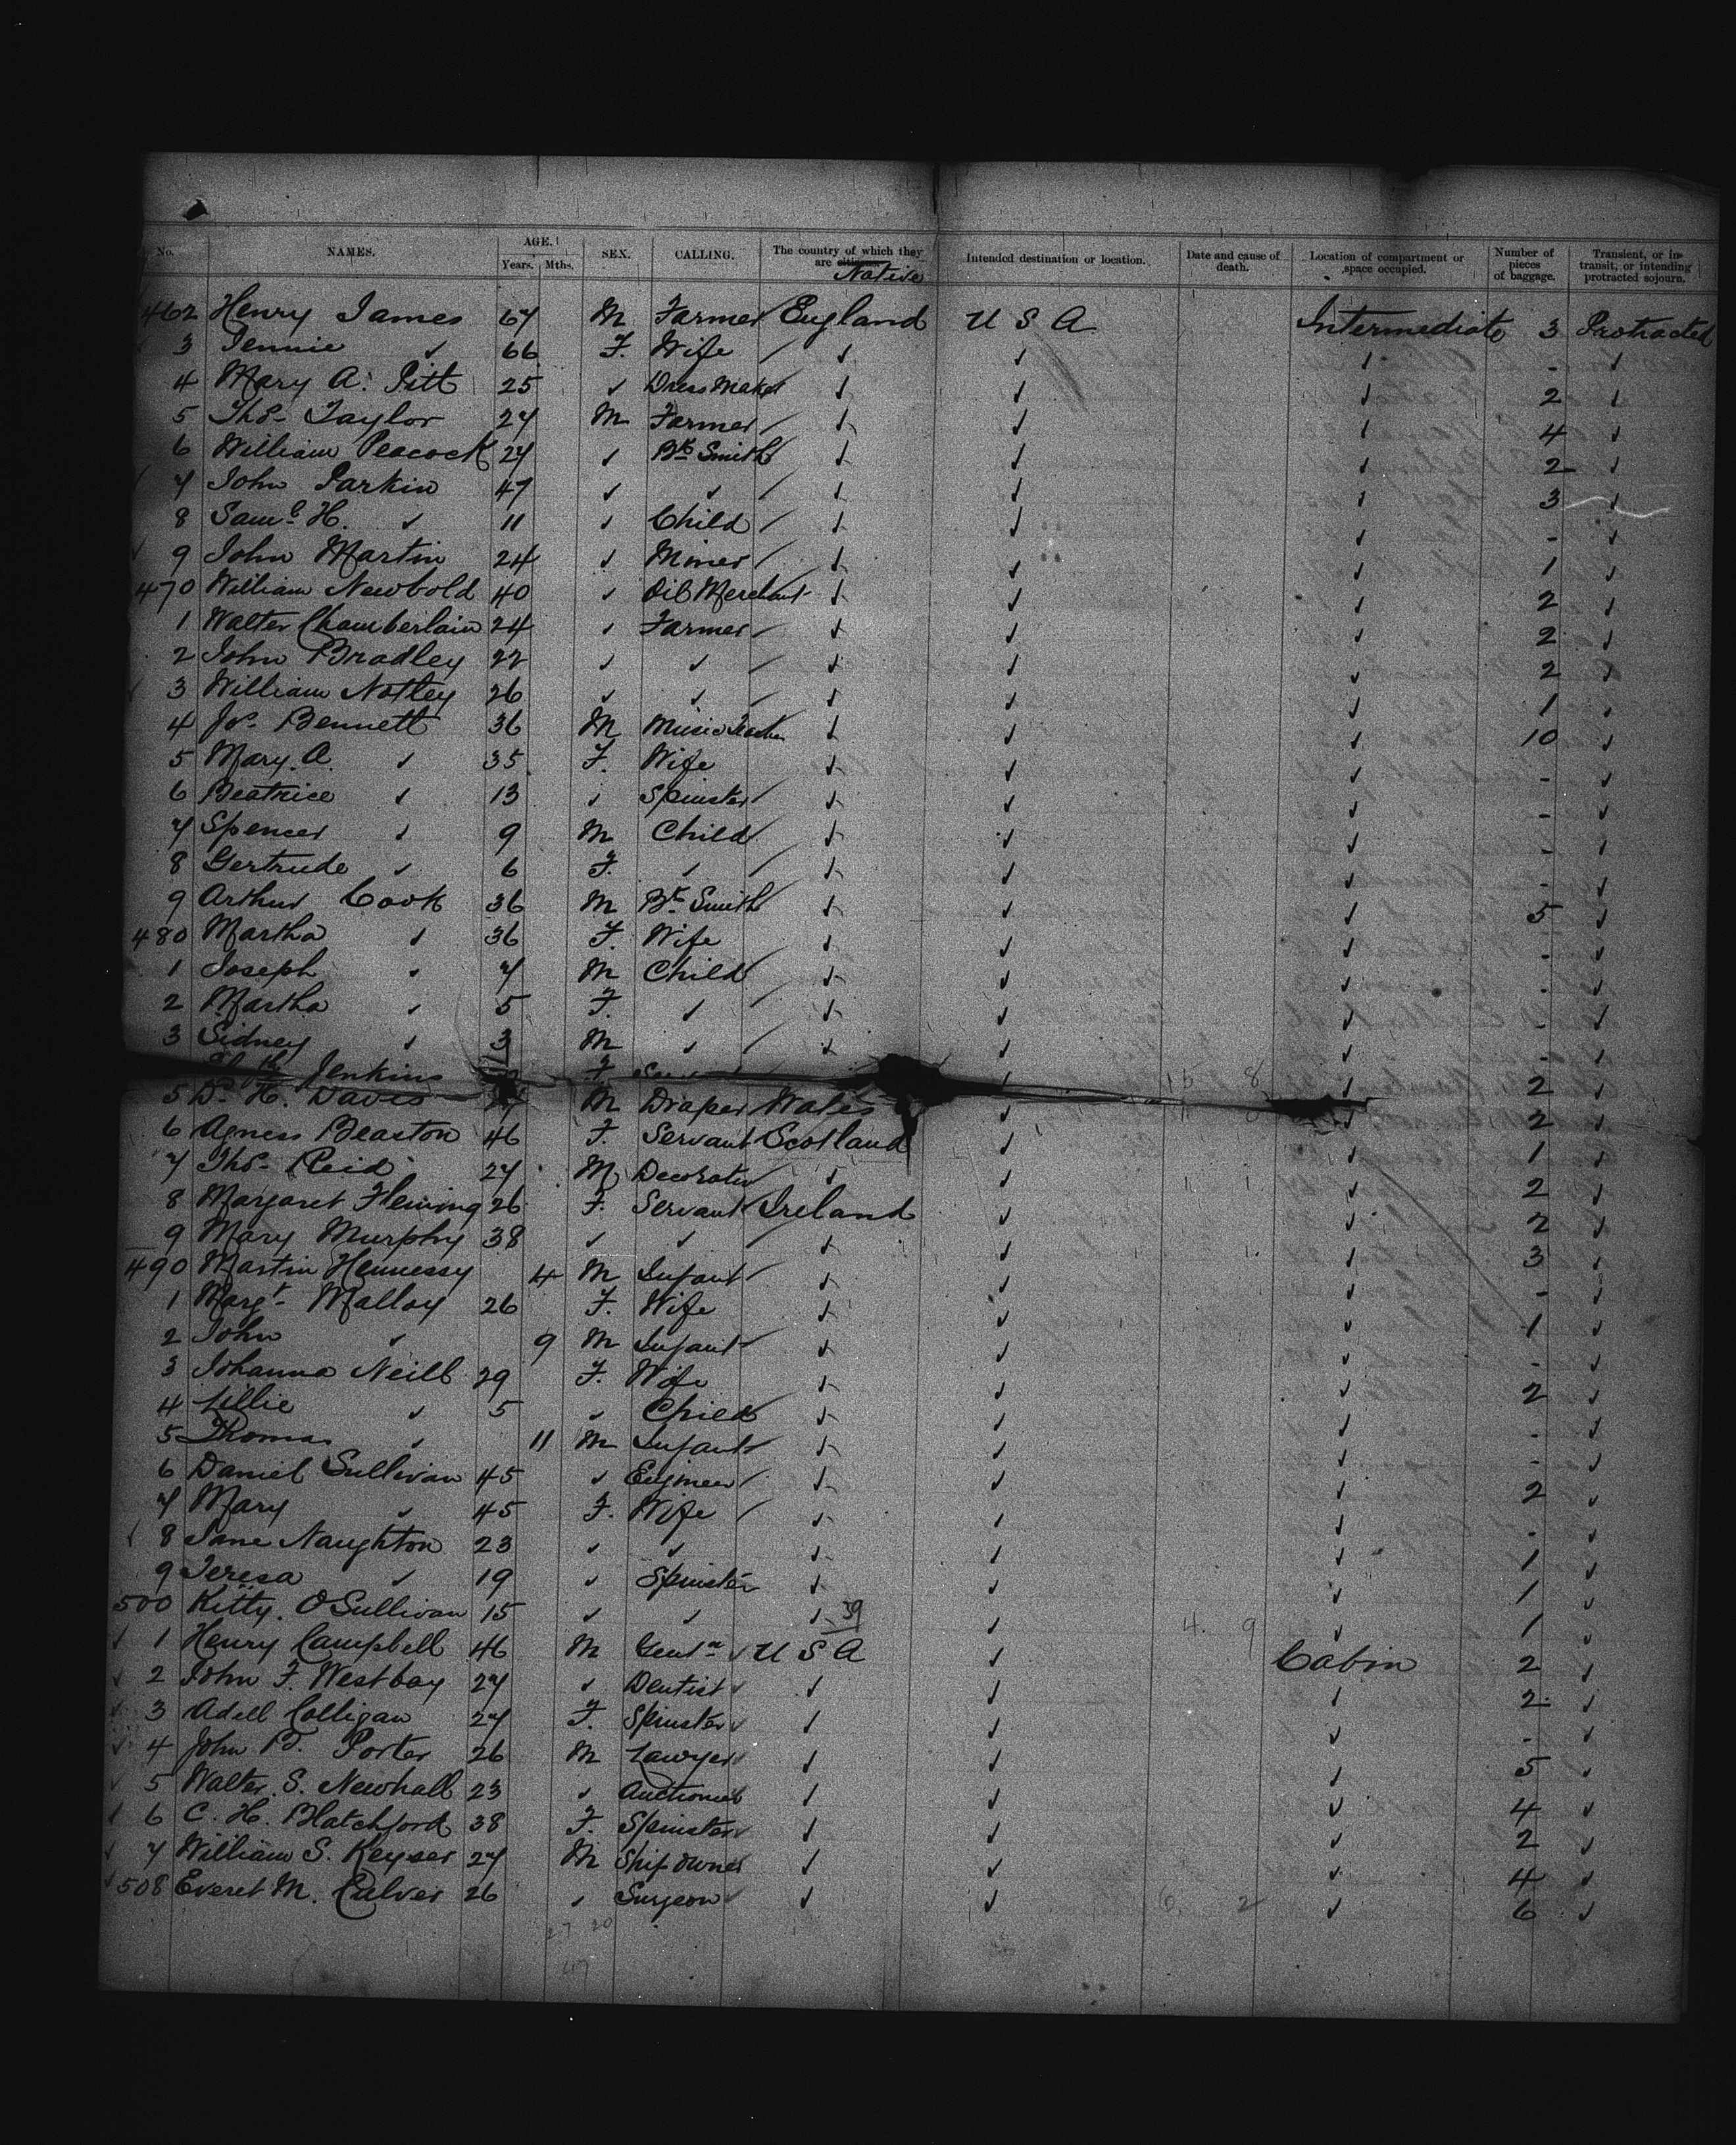 No. NAMES. AGE. Years. Mths. SEX. CALLING. The country of which they are citizens Native Intended destination or location. Date and cause of death. Location of compartment or space occupied. Number of pieces of baggage. Transient, or in transit, or intending protracted sojourn.
462 Henry James 67 M Farmer England U S A Intermediate 3 Protracted
3 Jennie ✓ 66 F. Wife ✓ ✓ ✓ - ✓
4 Mary A. Pitt 25 ✓ Dress Maker ✓ ✓ ✓ 2 ✓
5 Thos Taylor 27 M Farmer ✓ ✓ ✓ 4 ✓
6 William Peacock 27 ✓ Bk Smith ✓ ✓ ✓ 2 ✓
7 John Parkin 47 ✓ ✓ ✓ ✓ ✓ 3 ✓
8 Saml H. ✓ 11 ✓ Child ✓ ✓ ✓ - ✓
9 John Martin 24 ✓ Miner ✓ ✓ ✓ 1 ✓
470 William Newbold 40 ✓ Oil Merchant ✓ ✓ ✓ 2 ✓
1 Walter Chamberlain 24 ✓ Farmer ✓ ✓ ✓ 2 ✓
2 John Bradley 22 ✓ ✓ ✓ ✓ ✓ 2 ✓
3 William Notley 26 ✓ ✓ ✓ ✓ ✓ 1 ✓
4 Jos Bennett 36 M Music Teacher ✓ ✓ ✓ 10 ✓
5 Mary A. ✓ 35 F. Wife ✓ ✓ ✓ - ✓
6 Beatrice ✓ 13 ✓ Spinster ✓ ✓ ✓ - ✓
7 Spencer ✓ 9 M Child ✓ ✓ ✓ - ✓
8 Gertrude ✓ 6 F. ✓ ✓ ✓ ✓ - ✓
9 Arthur Cook 36 M Bk Smith ✓ ✓ ✓ 5 ✓
480 Martha ✓ 36 F. Wife ✓ ✓ ✓ - ✓
1 Joseph ✓ 7 M Child ✓ ✓ ✓ - ✓
2 Martha ✓ 5 F. ✓ ✓ ✓ ✓ - ✓
3 Sidney ✓ 3 M ✓ ✓ ✓ ✓ - ✓
Jenkins F ✓ 15 8 ✓ 2 ✓
5 D. H. Davis M Draper Wales ✓ ✓ 2 ✓
6 Agness Bearton 46 F. Servant Scotland ✓ ✓ 1 ✓
7 Thos Reid 27 M Decorator ✓ ✓ 1 1 ✓ 2 ✓
8 Margaret Fleming 26 F. Servant Ireland ✓ ✓ 2 ✓
9 Mary Murphy 38 ✓ ✓ ✓ ✓ ✓ 3 ✓
490 Martin Hennessy 4 M Infant ✓ ✓ ✓ - ✓
1 Margt Malloy 26 F. Wife ✓ ✓ ✓ 1 ✓
2 John ✓ 9 M Infant ✓ ✓ ✓ - ✓
3 Johanna Neill 29 F. Wife ✓ ✓ ✓ 2 ✓
4 Lillie ✓ 5 ✓ Child ✓ ✓ ✓ - ✓
5 Thomas ✓ 11 M Infant ✓ ✓ ✓ - ✓
6 Daniel Sullivan 45 ✓ Engineer ✓ ✓ ✓ 2 ✓
7 Mary ✓ 45 F. Wife ✓ ✓ ✓ - ✓
8 Jane Naughton 23 ✓ ✓ ✓ ✓ ✓ 1 ✓
9 Teresa ✓ 19 ✓ Spinster ✓ ✓ ✓ 1 ✓
500 Kitty. O'Sullivan 15 ✓ ✓ ✓ 39 ✓ 4 9 ✓ 1 ✓
1 Henry Campbell 46 M Gentn U S A ✓ Cabin 2 ✓
2 John F. Westbay 27 ✓ Dentist ✓ ✓ ✓ 2 ✓
3 Adell Colligan 27 F. Spinster ✓ ✓ ✓ - ✓
4 John B. Porter 26 M Lawyer ✓ ✓ ✓ 5 ✓
5 Walter S. Newhall 23 ✓ Auctioneer ✓ ✓ ✓ 4 ✓
6 C. H. Blatchford 38 F. Spinster ✓ ✓ ✓ 2 ✓
7 William S. Keyser 27 M Ship Owner ✓ ✓ ✓ 4 ✓
508 Everet M. Culver 26 ✓ Surgeon ✓ ✓ 6 2 ✓ 6 ✓
27 20
47